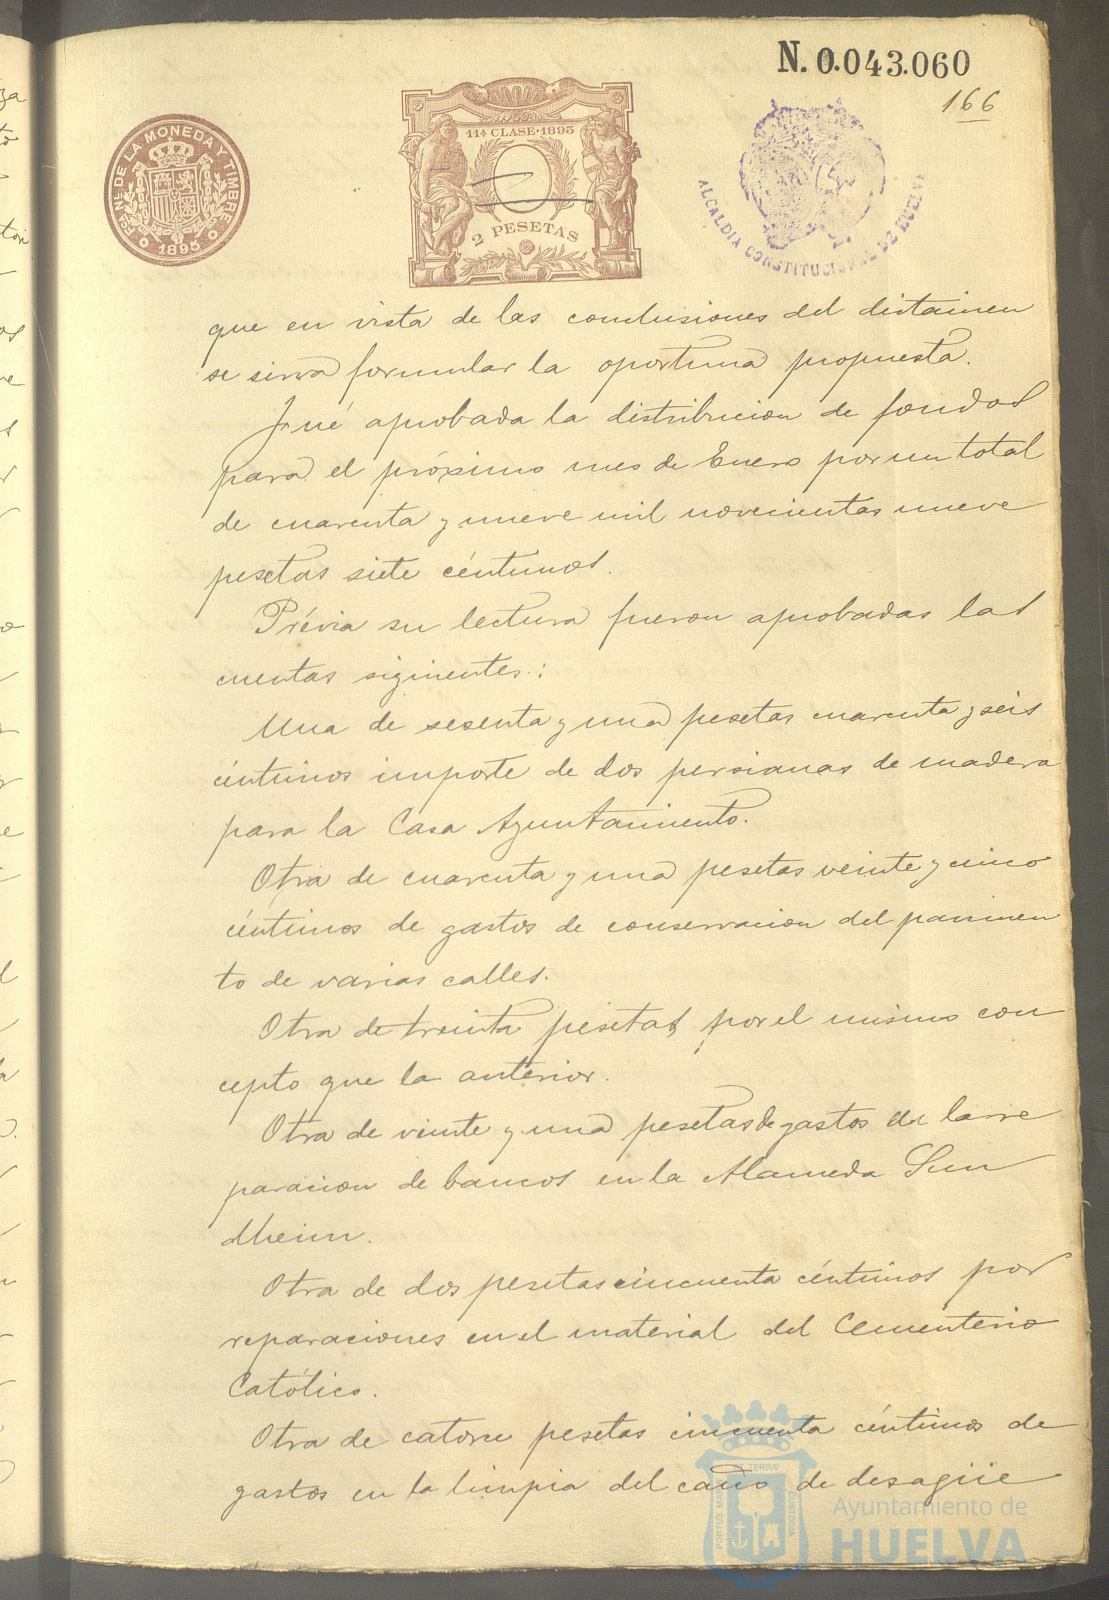 N. 0.043.060
166
FCA. NL. DE LA MONEDA Y TIMBRE
1895
11ª CLASE·1895
2 PESETAS
ALCALDIA CONSTITUCIONAL DE HUELVA
que en vista de las conclusiones del dictamen
se sirva formular la oportuna propuesta.
Fué aprobada la distribucion de fondos
para el próximo mes de Enero por un total
de cuarenta y nueve mil novecientas nueve
pesetas siete céntimos.
Prévia su lectura fueron aprobadas las
cuentas siguientes:
Una de sesenta y una pesetas cuarenta y seis
céntimos importe de dos persianas de madera
para la Casa Ayuntamiento.
Otra de cuarenta y una pesetas veinte y cinco
céntimos de gastos de conservacion del pavimen
to de varias calles.
Otra de treinta pesetas por el mismo con
cepto que la anterior.
Otra de veinte y una pesetas de gastos en la re
paracion de bancos en la Alameda Sun
dheim.
Otra de dos pesetas cincuenta céntimos por
reparaciones en el material del Cementerio
Católico.
Otra de catorce pesetas cincuenta céntimos de
gastos en la limpia del caño de desagüe
PORTUS MARIS ET TERRÆ CUSTODIA
Ayuntamiento de
HUELVA